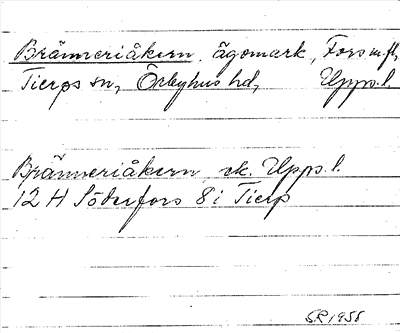 Bränneriåkern, ägomark, Fors m.fl.,
Tierps sn, Örbyhus hd, Upps.l.
Bränneriåkern, ek. Upps.l.
12 H Söderfors 8 i Tierp
GR 1955